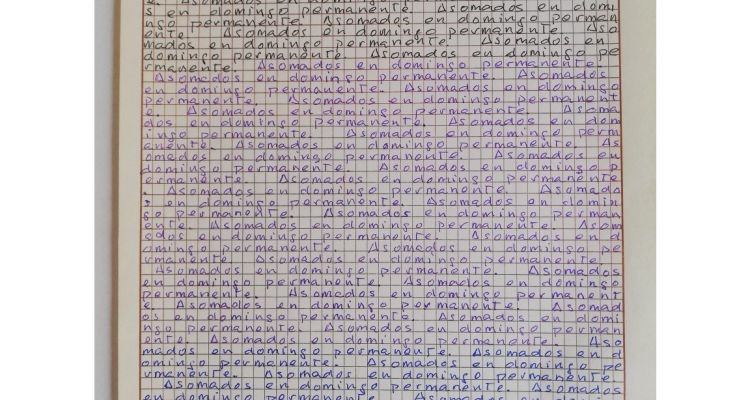 s en domingo permanente. Asomados en domi
ngo permanente. Asomados en domingo perman
ente. Asomados en domingo permanente. Aso
mados en domingo permanente. Asomados en
domingo permanente. Asomados en domingo pe
rmanente. Asomados en domingo permanente.
Asomados en domingo permanente. Asomados
en domingo permanente. Asomados en domingo
permanente. Asomados en domingo permanent
e. Asomados en domingo permanente. Asoma
dos en domingo permanente. Asomados en dom
ingo permanente. Asomados en domingo perm
anente. Asomados en domingo permanente. As
omados en domingo permanente. Asomados en
domingo permanente. Asomados en domingo p
ermanente. Asomados en domingo permanente
. Asomados en domingo permanente. Asomado
s en domingo permanente. Asomados en domin
go permanente. Asomados en domingo perman
ente. Asomados en domingo permanente. Asom
ados en domingo permanente. Asomados en d
omingo permanente. Asomados en domingo pe
rmanente. Asomados en domingo permanente.
Asomados en domingo permanente. Asomados
en domingo permanente. Asomados en domingo
permanente. Asomados en domingo permanent
e. Asomados en domingo permanente. Asomad
os en domingo permanente. Asomados en domi
ngo permanente. Asomados en domingo perman
ente. Asomados en domingo permanente. Aso
mados en domingo permanente. Asomados en d
omingo permanente. Asomados en domingo pe
rmanente. Asomados en domingo permanente.
Asomados en domingo permanente. Asomados
en domingo permanente. Asomados en domingo